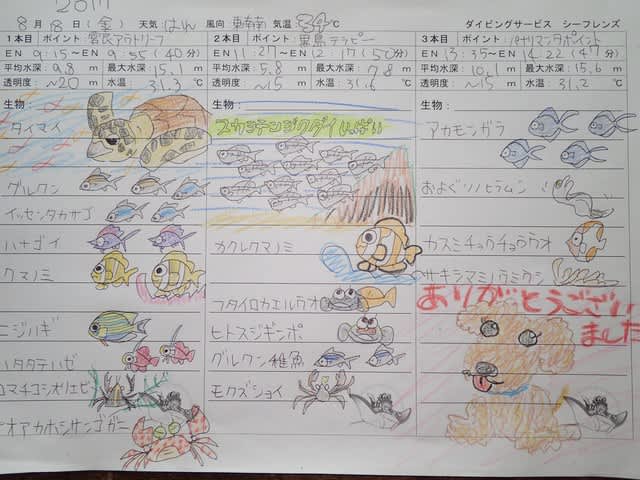 2017
8月18日(金) 天気 はれ 風向 東南 気温 34℃ ダイビングサービス シーフレンズ
1本目 ポイント 宮良アラトリーフ
EN 9:15〜EN 9:55(40分)
平均水深: 9.8m 最大水深: 15.1m
透明度: 〜20m 水温: 31.3℃
生物:
タイマイ
グルクン
イッセンタカサゴ
ハナゴイ
クマノミ
ニジハギ
ハタタテハゼ
コマチコシオリエビ
オオアカホシサンゴガニ
2本目 ポイント 黒島テラピー
EN 11:27〜EN 12:17(50分)
平均水深: 5.8m 最大水深: 7.8m
透明度: 〜15m 水温: 31.6℃
生物:
スカシテンジクダイいっぱい
カクレクマノミ
フタイロカエルウオ
ヒトスジギンポ
グルクン稚魚
モクズショイ
3本目 ポイント パナリマンタポイント
EN 13:35〜EN 14:22(47分)
平均水深: 10.1m 最大水深: 15.6m
透明度: 〜15m 水温: 31.2℃
生物:
アカモンガラ
およぐソメヒラムシ
カスミチョウチョウウオ
サキシマミノウミウシ
ありがとうござい
ました